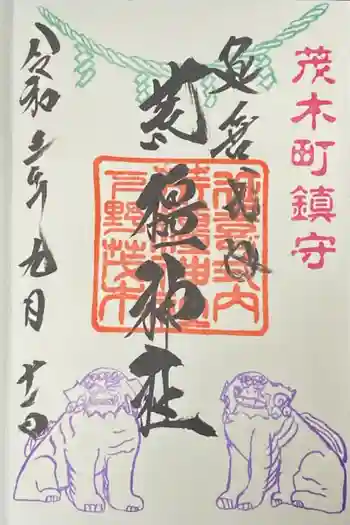 茂木町鎮守
延喜式内
荒橿神社
令和 年九月十一日
延喜式内
荒橿神社
下野茂木